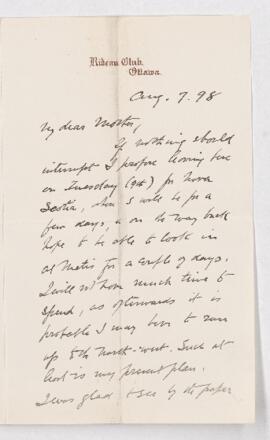 Rideau Club,
Ottawa.
Aug. 7. 98
My dear Mother,
If nothing should
interrupt I propose leaving here
on Tuesday (9th) for Nova
Scotia, where I will be for a
few days, & on the way back
hope to be able to look in
at Metis for a couple of days.
I will not have much time to
spend, as afterwards it is
probable I may have to run
up to the north-west. Such at
least is my present plan.
I was glad to see by the paper